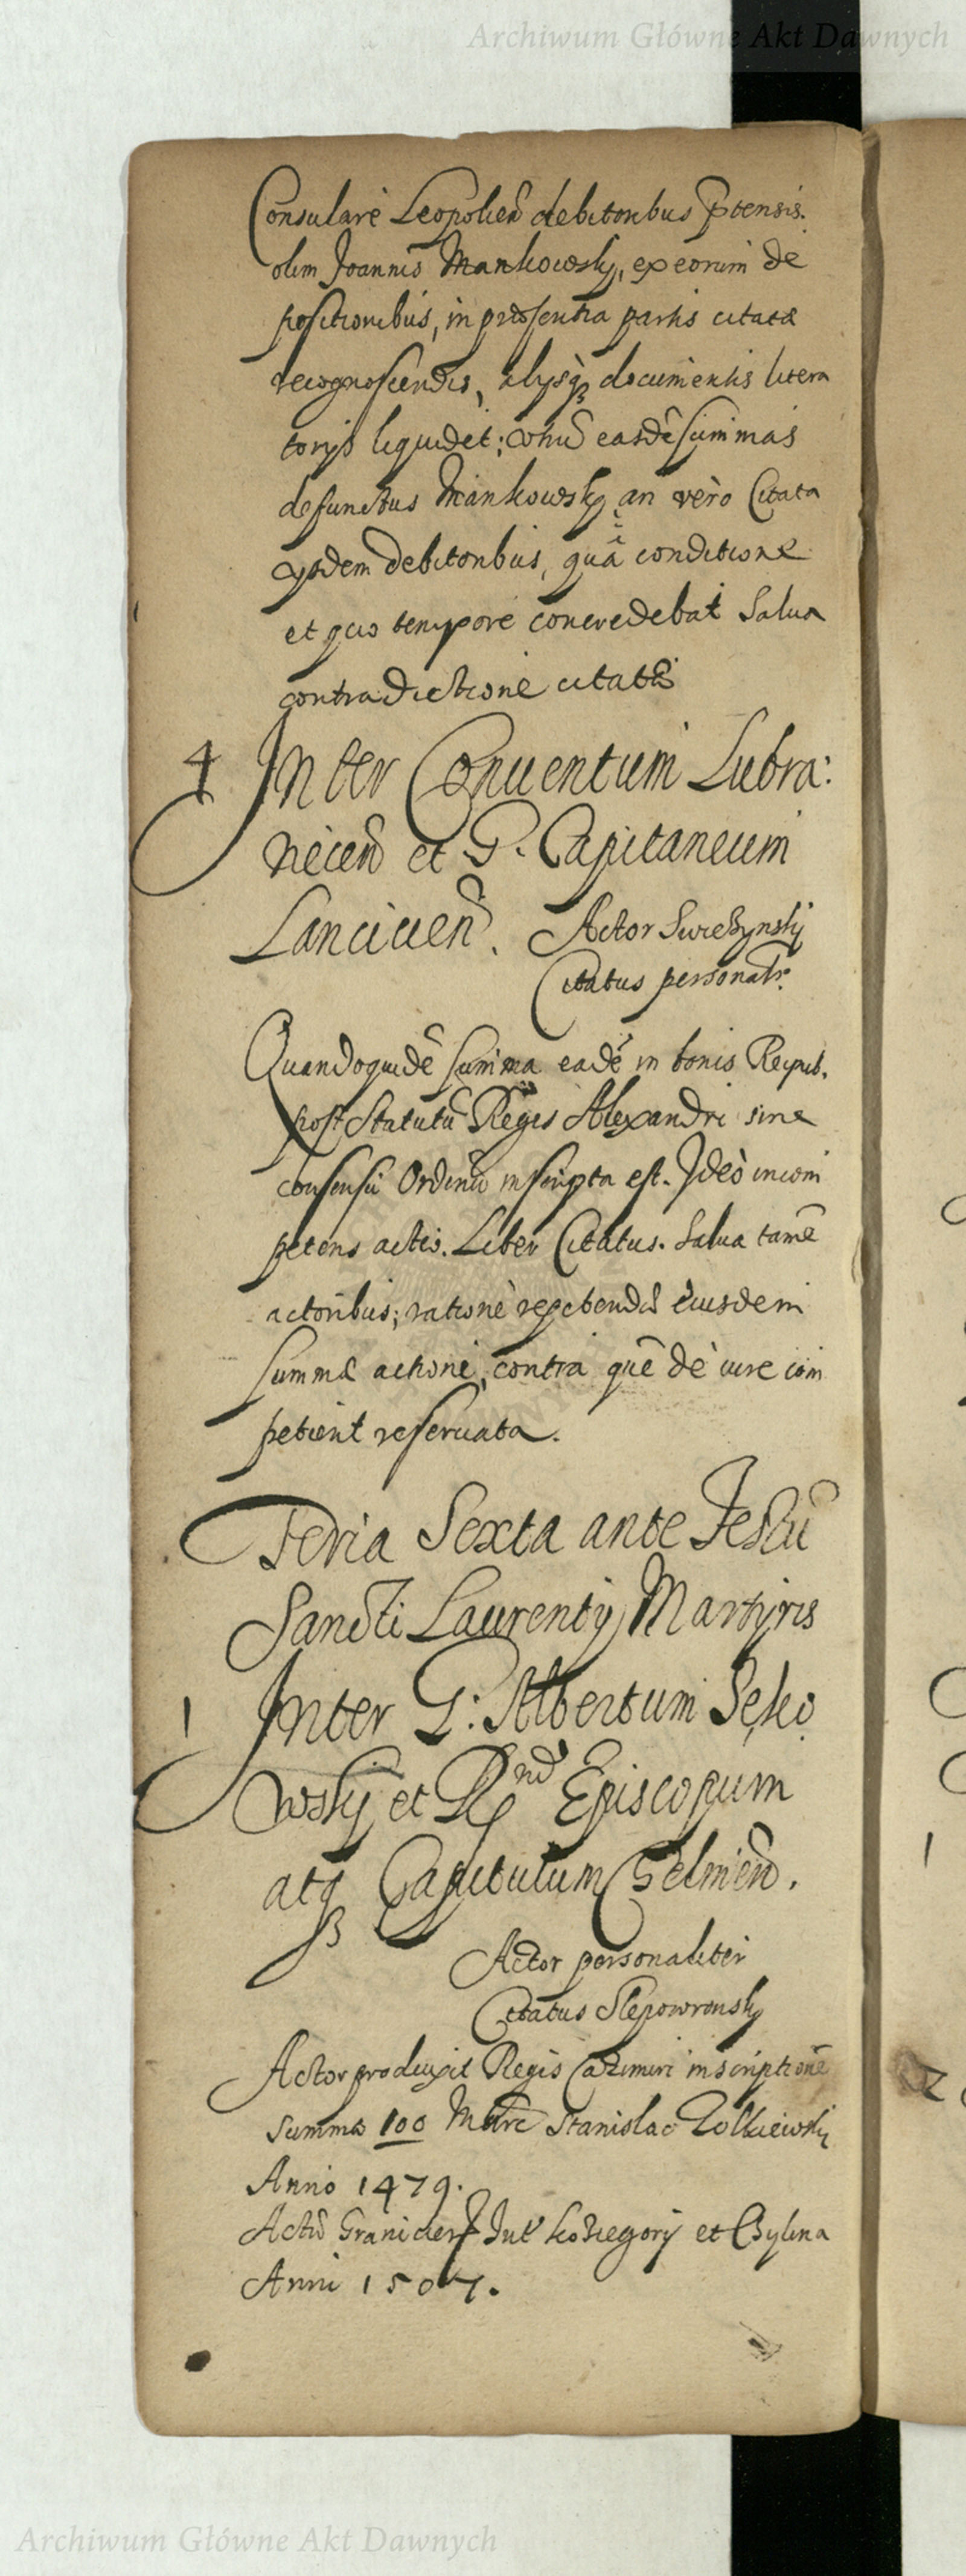 Archiwum Główne Akt Dawnych
Consulare Leopolien debitoribus ptensis.
olim Joannis Mankowsky, ex eorum de
positionibus, in præsentia partis citatæ
recognoscendis, alysq3 documentis litera
torys liquidet; easdē summas
defunctus Mankowsky an vero Citata
ysdem debitoribus, quâ conditione
et quo tempore concredebat salua
contradictione citatæ
4 Inter Conuentum Lubra:
niecen et G. Capitaneum
Lancicien. Actor Swieżynsky
Citatus personalr.
Quandoquidē summa eadē in bonis Reipub.
post Statutū Regis Alexandri sine
consensu Ordinū inscripta est. Ideò incom
petens actio. Liber Citatus. Salua tamē
actoribus; rationè repetendæ eiusdem
summæ actionè, contra quē dè iure com
petient reseruata.
Feria Sexta ante Festū
Sancti Laurenty Martyris
1 Inter G: Albertum Sęko
wsky et Rnd Episcopum
atq3 Capitulum Chelmen.
Actor personaliter
Citatus Slepowronsky
Actor produxit Regis Cazimiri inscriptionē
summæ 100 Marc Stanislao Zolkiewsky
Anno 1479.
Actū Granicier Int Koziegory et Czylina
Anni 1507.
Archiwum Główne Akt Dawnych